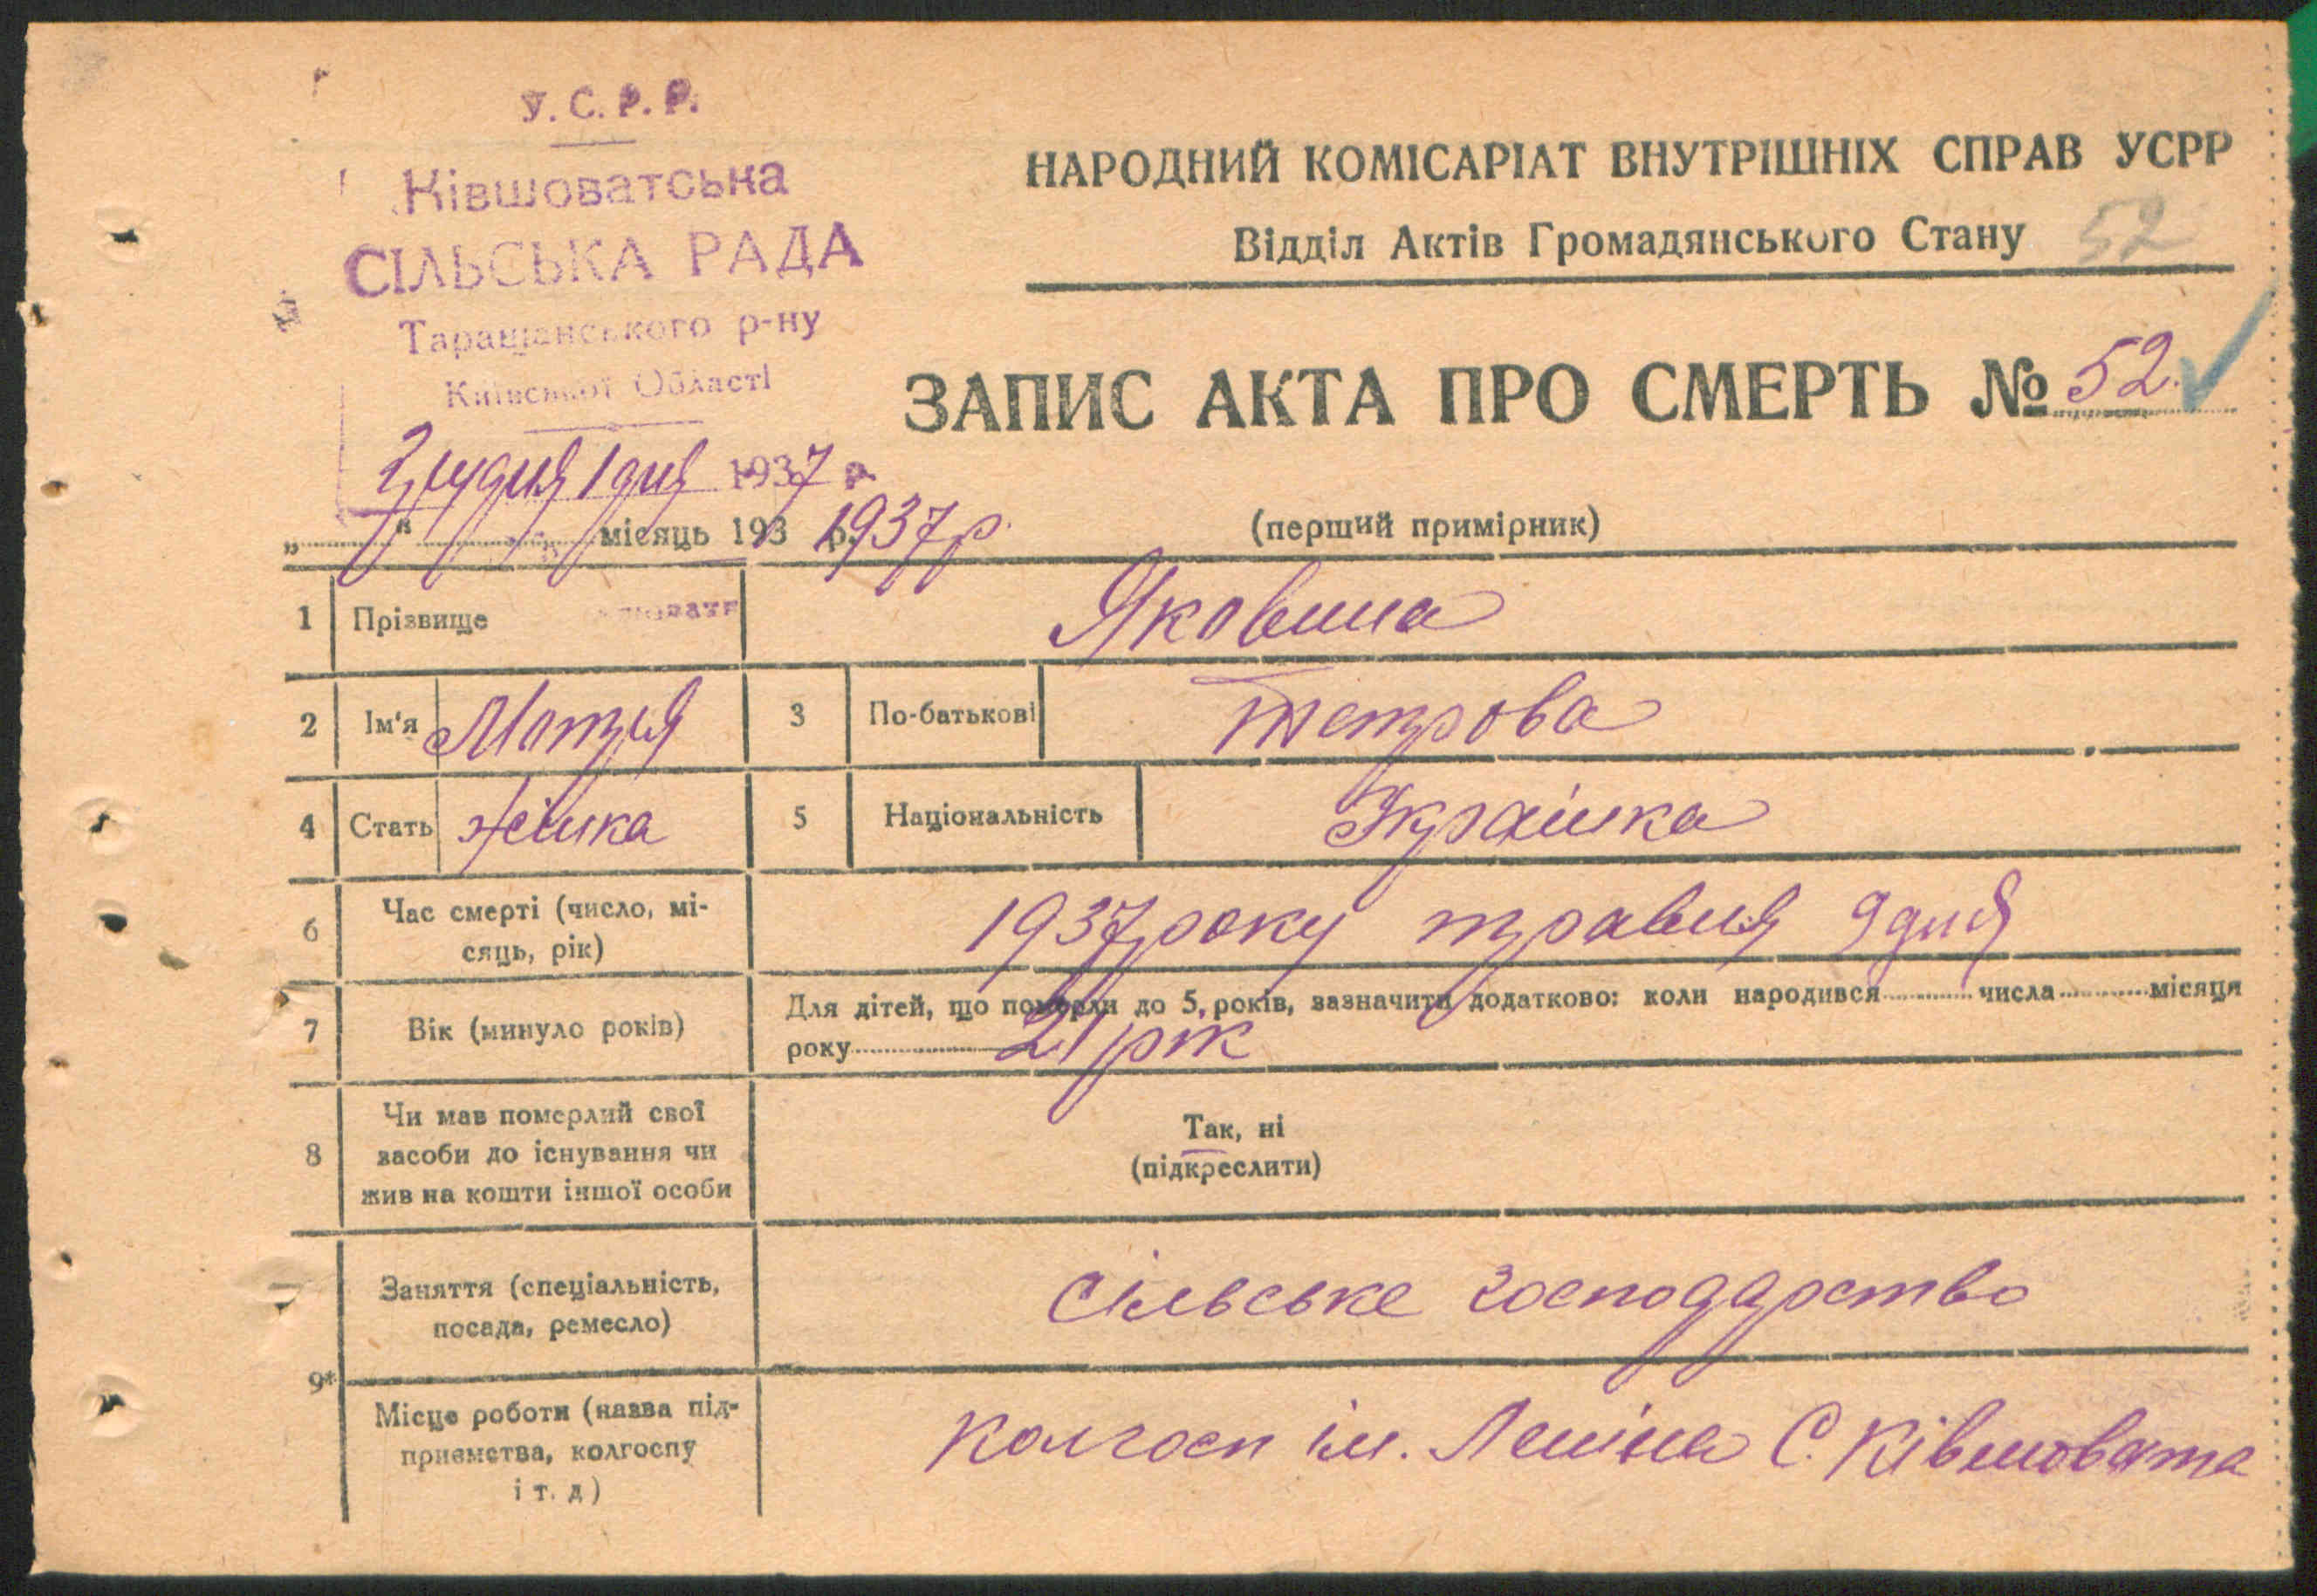 У.С.Р.Р.
Ківшоватська
СІЛЬСЬКА РАДА
Таращанського р-ну
Київської Області
Грудня 1 дня 1937 р.
НАРОДНИЙ КОМІСАРІАТ ВНУТРІШНІХ СПРАВ УСРР
Відділ Актів Громадянського Стану 52
ЗАПИС АКТА ПРО СМЕРТЬ № 52
„ “ місяць 193 р. 1937 р.
(перший примірник)
1 Прізвище Яковина
2 Ім'я Мотря 3 По-батькові Петрова
4 Стать жінка 5 Національність Українка
6 Час смерті (число, мі-
сяць, рік) 1937 року травня 9 дня
7 Вік (минуло років) Для дітей, що померли до 5, років, зазначити додатково: коли народився числа місяця
року 21 рік
8 Чи мав померлий свої
засоби до існування чи
жив на кошти іншої особи
Так, ні
(підкреслити)
9*
Заняття (спеціальність,
посада, ремесло) сільське господарство
Місце роботи (назва під-
приємства, колгоспу
і т. д) Колгосп ім. Леніна С. Ківшовата